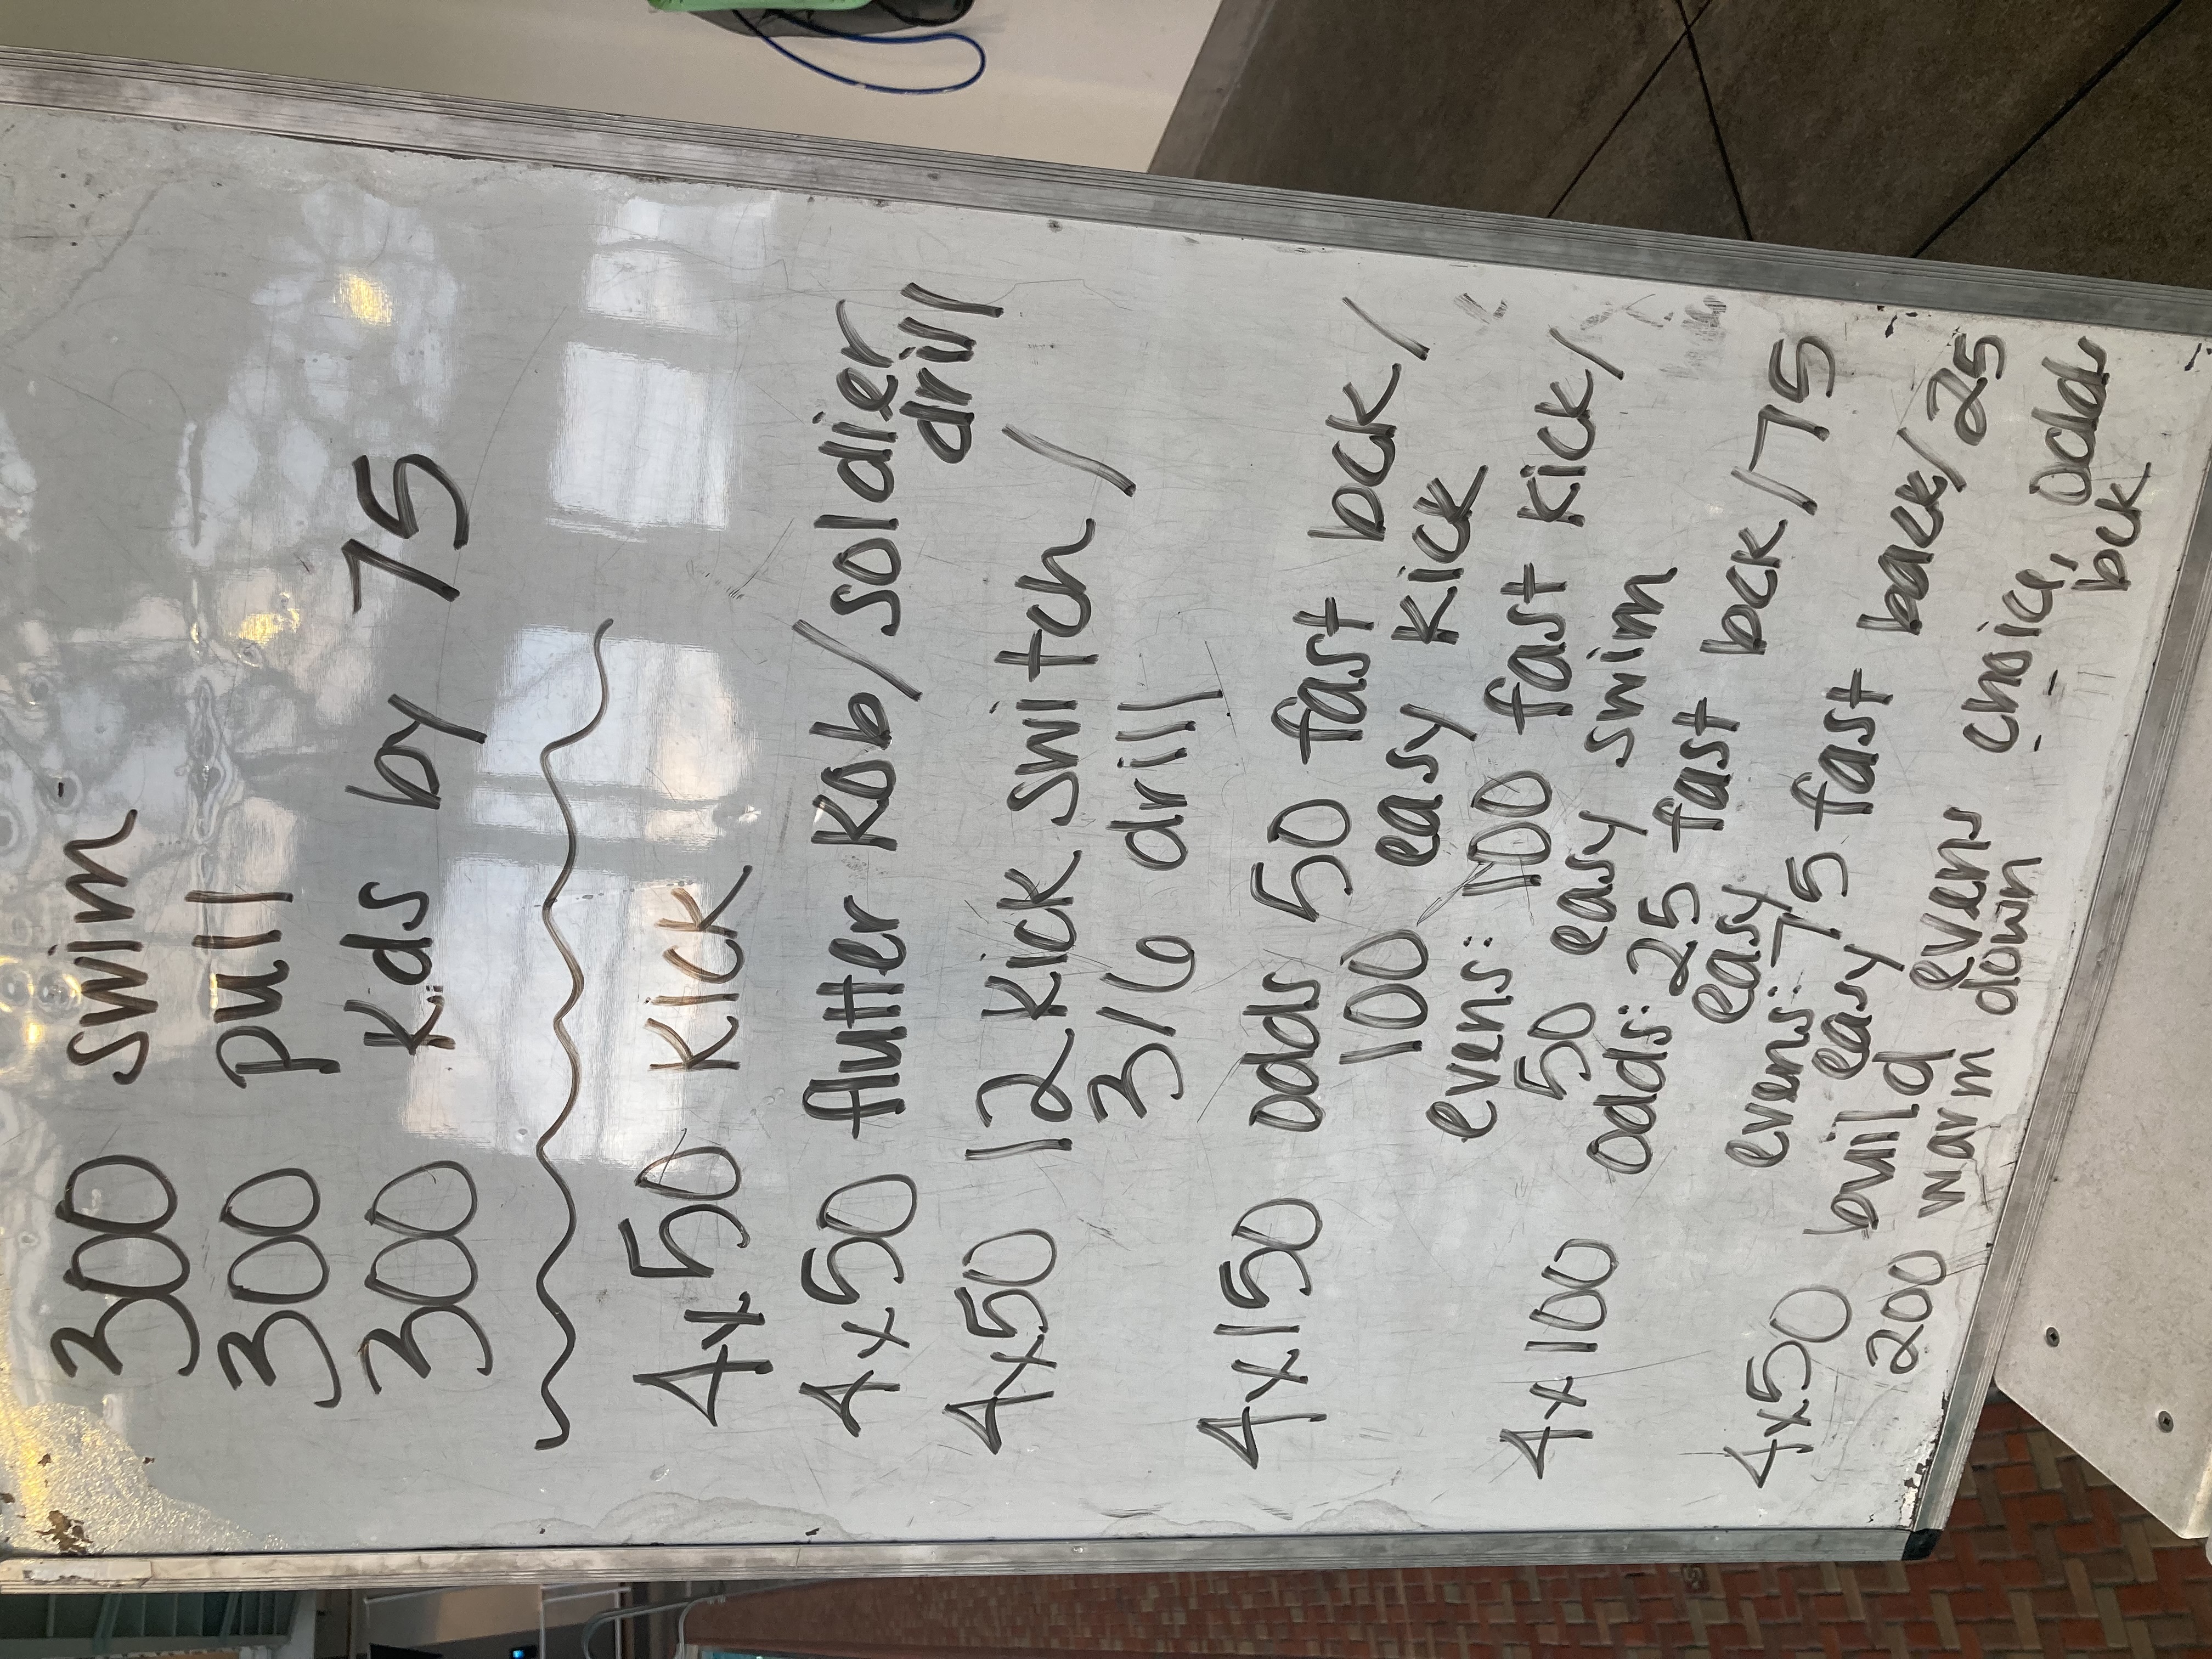 300 swim
300 pull
300 Kds by 75
4x50 Kick
4x50 flutter Kob/soldier
drill
4x50 12 Kick switch/
3/6 drill
4x150 odds 50 fast bck/
100 easy Kick
evens: 100 fast Kick/
50 easy swim
4x100 odds: 25 fast bck/75
easy
evens: 75 fast back/25
easy
4x50 build evens choice, odds
bck
200 warm down